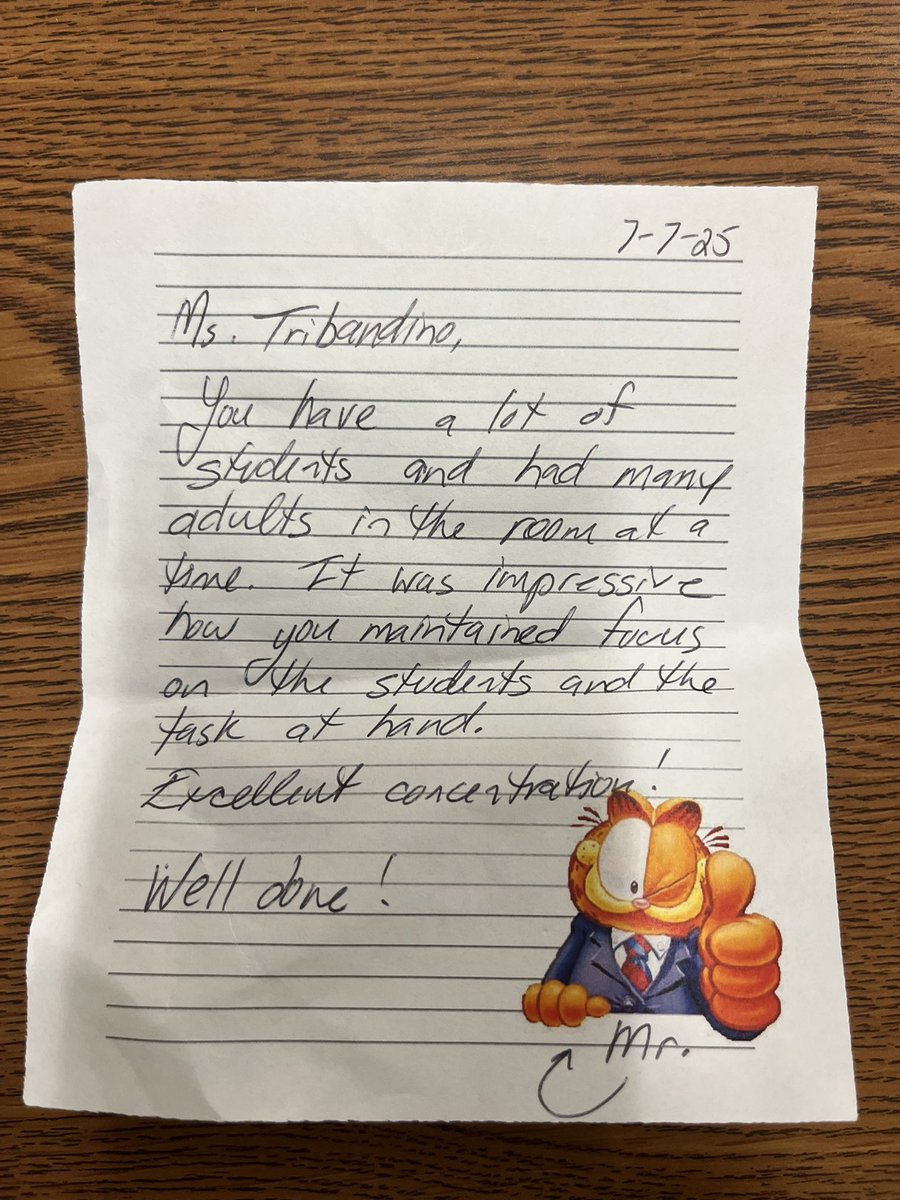 7-7-25
Ms. Tribandino,
You have a lot of
students and had many
adults in the room at a
time. It was impressive
how you maintained focus
on the students and the
task at hand.
Excellent concentration!
Well done!
Mr.